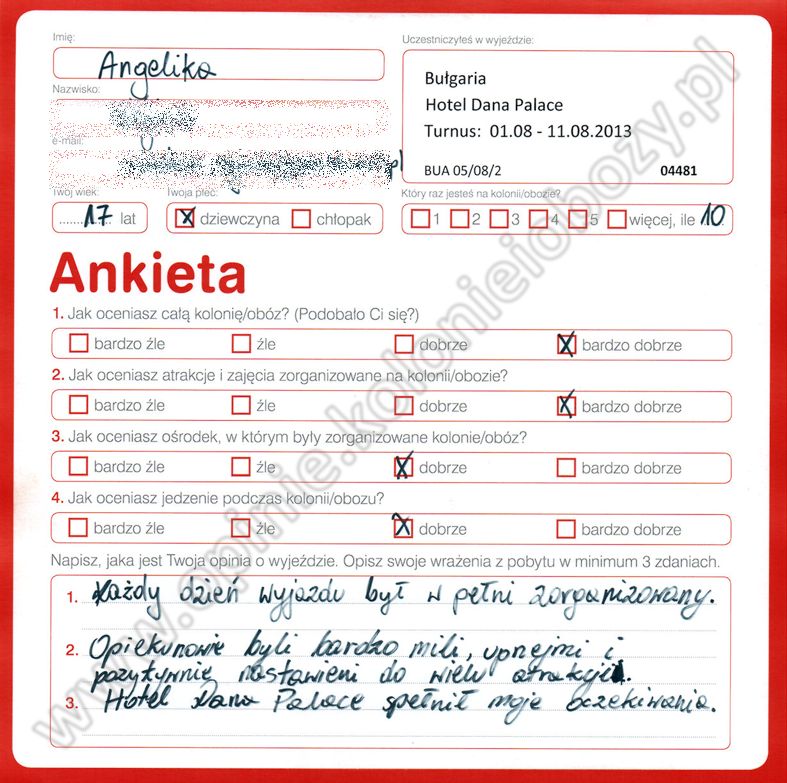 Imię:
Angelika
Uczestniczyłeś w wyjeździe:
Bułgaria
Hotel Dana Palace
Turnus: 01.08 - 11.08.2013
BUA 05/08/2
04481
Nazwisko:
e-mail:
Twój wiek:
17 lat
Twoja płeć:
dziewczyna chłopak
Który raz jesteś na kolonii/obozie?
1 2 3 4 5 więcej, ile 10
Ankieta
1. Jak oceniasz całą kolonię/obóz? (Podobało Ci się?)
bardzo źle źle dobrze bardzo dobrze
2. Jak oceniasz atrakcje i zajęcia zorganizowane na kolonii/obozie?
bardzo źle źle dobrze bardzo dobrze
3. Jak oceniasz ośrodek, w którym były zorganizowane kolonie/obóz?
bardzo źle źle dobrze bardzo dobrze
4. Jak oceniasz jedzenie podczas kolonii/obozu?
bardzo źle źle dobrze bardzo dobrze
Napisz, jaka jest Twoja opinia o wyjeździe. Opisz swoje wrażenia z pobytu w minimum 3 zdaniach.
1. Każdy dzień wyjazdu był w pełni zorganizowany.
2. Opiekunowie byli bardzo mili, uprzejmi i
pozytywnie nastawieni do wielu atrakcji.
3. Hotel Dana Palace spełnił moje oczekiwania.
www.opinie.kolonieiobozy.pl